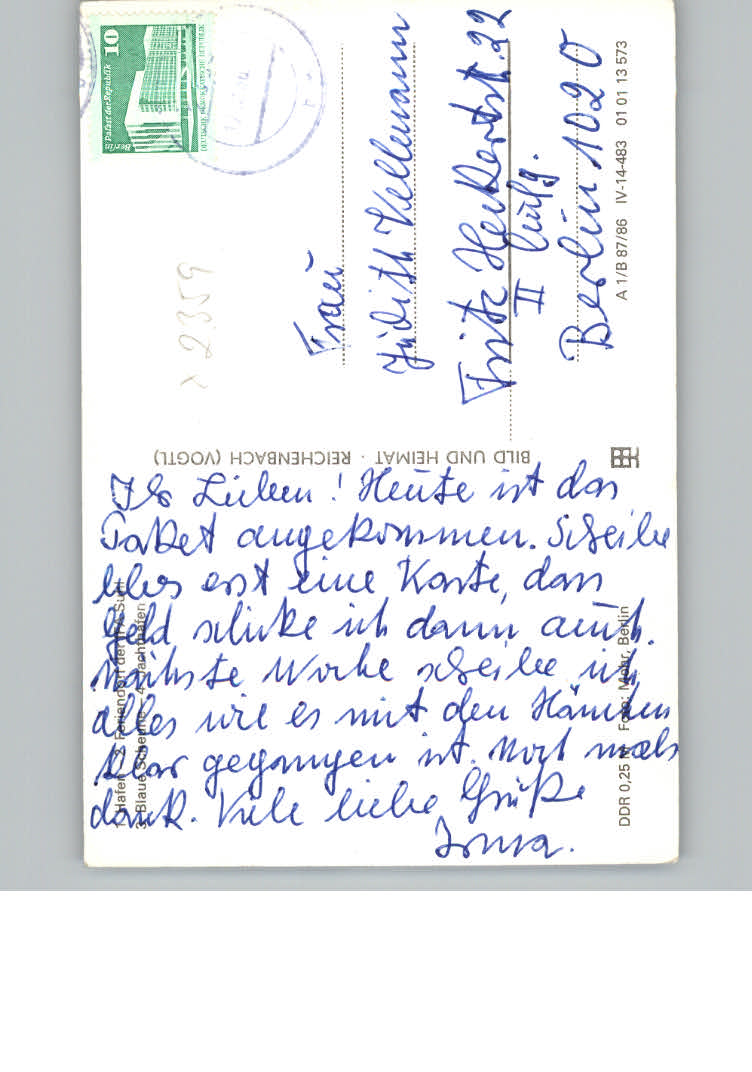 Ihr Lieben! Heute ist das
Paket angekommen. Scheibe
erst eine Karte, das
Geld schicke ich dann auch.
Nächste Woche scheibe ich
alles wie es mit den
klar gegangen ist. Noch mals
dank. Viele liebe Grüße
Irma.
1. Hafen 2. Feriendorf der
3. Blaue Scheune 4.
DDR 0,25 M Foto: Mohr, Berlin
BILD UND HEIMAT · REICHENBACH (VOGTL)
Frau
Judith Kellermann
Fritz Heckertstr. 22
II Aufg.
Berlin 1020
A 1/B 87/86 IV-14-483 01 01 13 573
10
Palast der Republik
Berlin
DEUTSCHE DEMOKRATISCHE REPUBLIK
2359